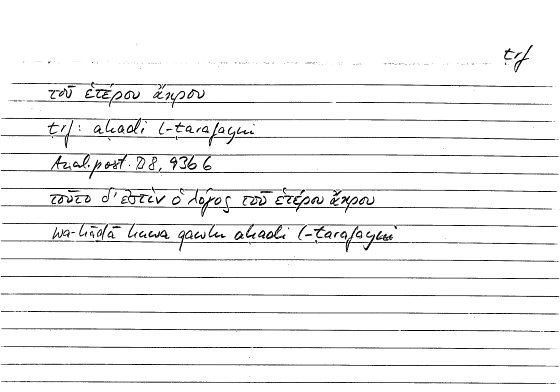 ṭrf
τοῦ ἑτέρου ἄκρου
ṭrf: aḥadi l-ṭarafayni
Anal. post. B8, 93b6
τοῦτο δ' ἐστὶν ὁ λόγος τοῦ ἑτέρου ἄκρου
wa-hāḏā huwa qawlu aḥadi l-ṭarafayni